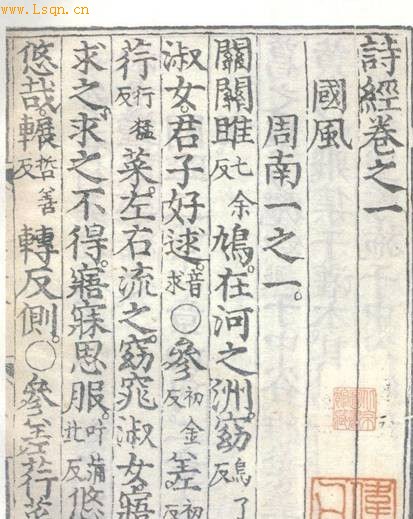 www.Lsqn.cn
詩經卷之一
國風
周南一之一。
關關雎七余反鳩。在河之洲。窈烏了反
淑女。君子好逑。音求○參初金反差初反
荇行猛反菜。左右流之。窈窕淑女。寤
求之。求之不得。寤寐思服。叶蒲北反悠
悠哉。輾哲善反轉反側。○參差荇